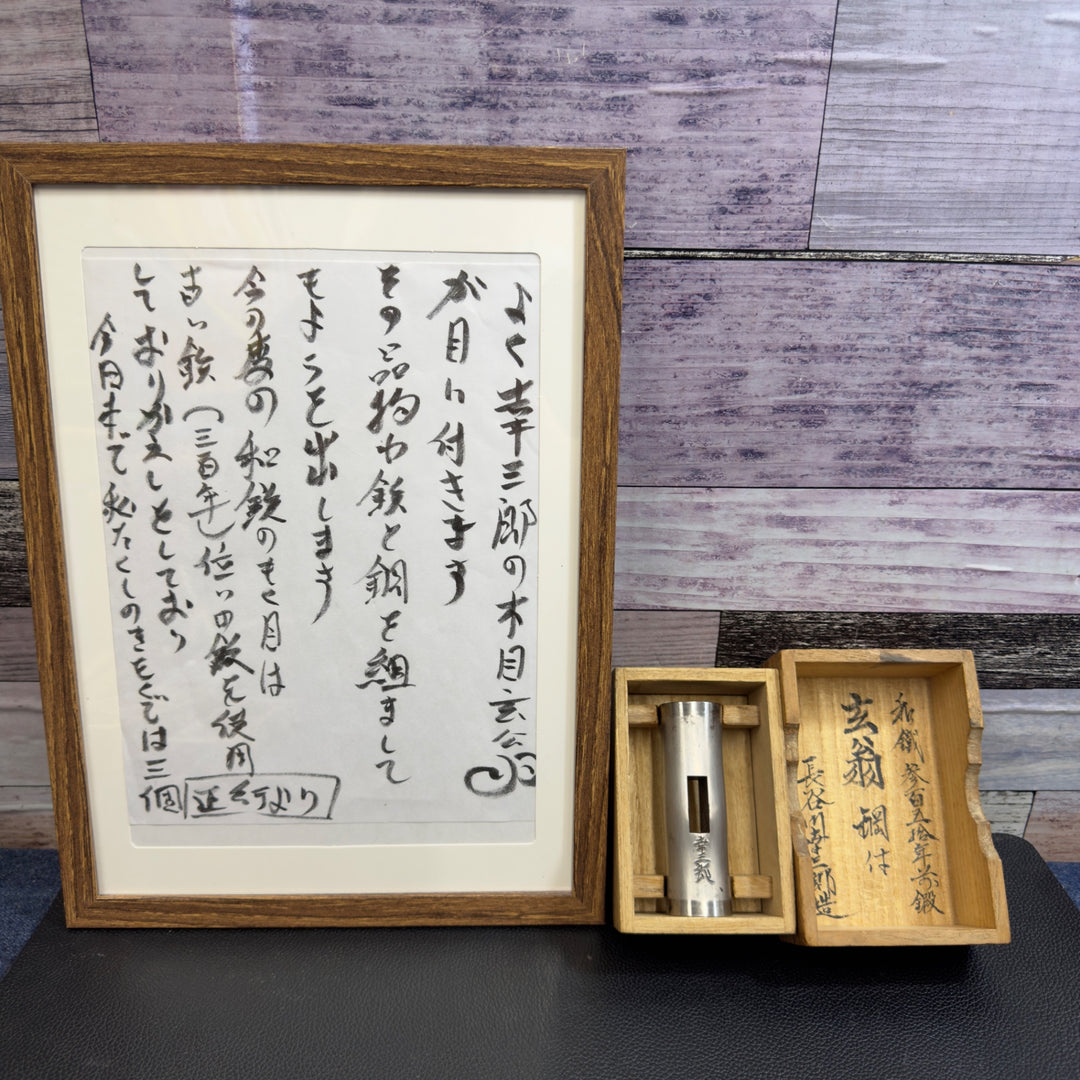 よく幸三郎の木目玄公
が目に付きます
その品物わ鉄と鋼を組まして
もようを出します
今の度の和鉄のもく目は
古い鉄(三百年)位いの鉄を使用
しておりかえしとしており
今日本で私たくしのきもくでは三個
正行より
幸三郎
和鐵参百五拾年前鍛
玄翁 鋼は
長谷川幸三郎造